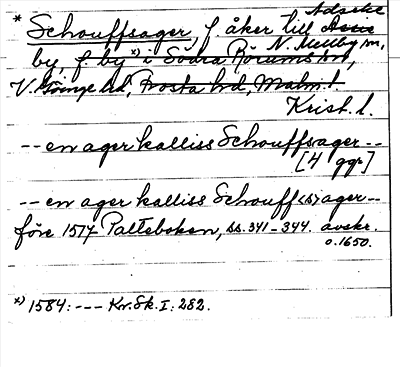 * Schouffsager, f. åker till Adseke
by f. by *) i Södra Rörums sn, N. Mellby sn,
V. Göinge hd, Frosta hd, Malm. l.
Krist. l.
-- en ager kalliss Schouffsager --
[4 ggr]
-- en ager kalliss Schouff<s>ager --
före 1517 Palteboken, ss. 341-344. avskr.
o. 1650.
*) 1584: --- Kr. Sk. I: 282.